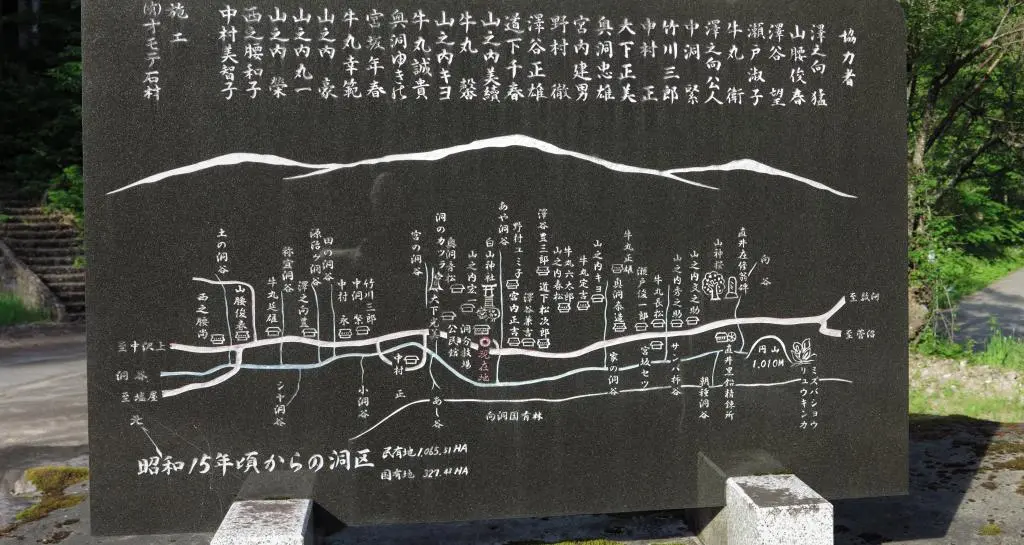 協力者
澤之向 猛
山腰俊春
澤谷 望
瀬戸淑子
牛丸 衛
澤之向公人
中洞 緊
竹川三郎
中村 正
大下正美
奥洞忠雄
宮内建男
野村 徹
澤谷正雄
道下千春
山之内美績
牛丸 馨
山之内キヨ
牛丸誠貴
奥洞ゆき代
宮坂年春
牛丸幸範
山之内 豪
山之内丸一
山之内 榮
西之腰和子
中村美智子
施工
オモテ石材
向谷
直井左俊
山神様
山之内文之助
山之内寿之助
牛丸長松
瀬戸俊一郎
牛丸正雄
奥洞春造
山之内キヨ
牛丸定吉
牛丸六太郎
山之内春松
澤谷豊三郎
道下松次郎
澤谷兼吉
野村エミ子
宮内正吉
あや洞谷
白山神社
山之内宏一
洞分教場
公民館
奥洞彦松
洞のカツラ
大下久吉
宮の洞谷
竹川三郎
中洞緊
中村 永
田の洞谷
源治ヶ洞谷
澤之向豊
弥蔵洞谷
牛丸延雄
土の洞谷
山腰俊春
西之腰尚
至中沢上
洞谷
至塩屋
北
至数河
至菅沼
現在地
中村 正
シナ洞谷
小洞谷
あし谷
向洞国有林
家の洞谷
宮坂セツ
サンパ杵谷
朝種洞谷
直井黒鉛精錬所
円山
1,010M
ミズバショウ
リュウキンカ
昭和15年頃からの洞区
民有地 1,065.31HA
国有地 327.41HA